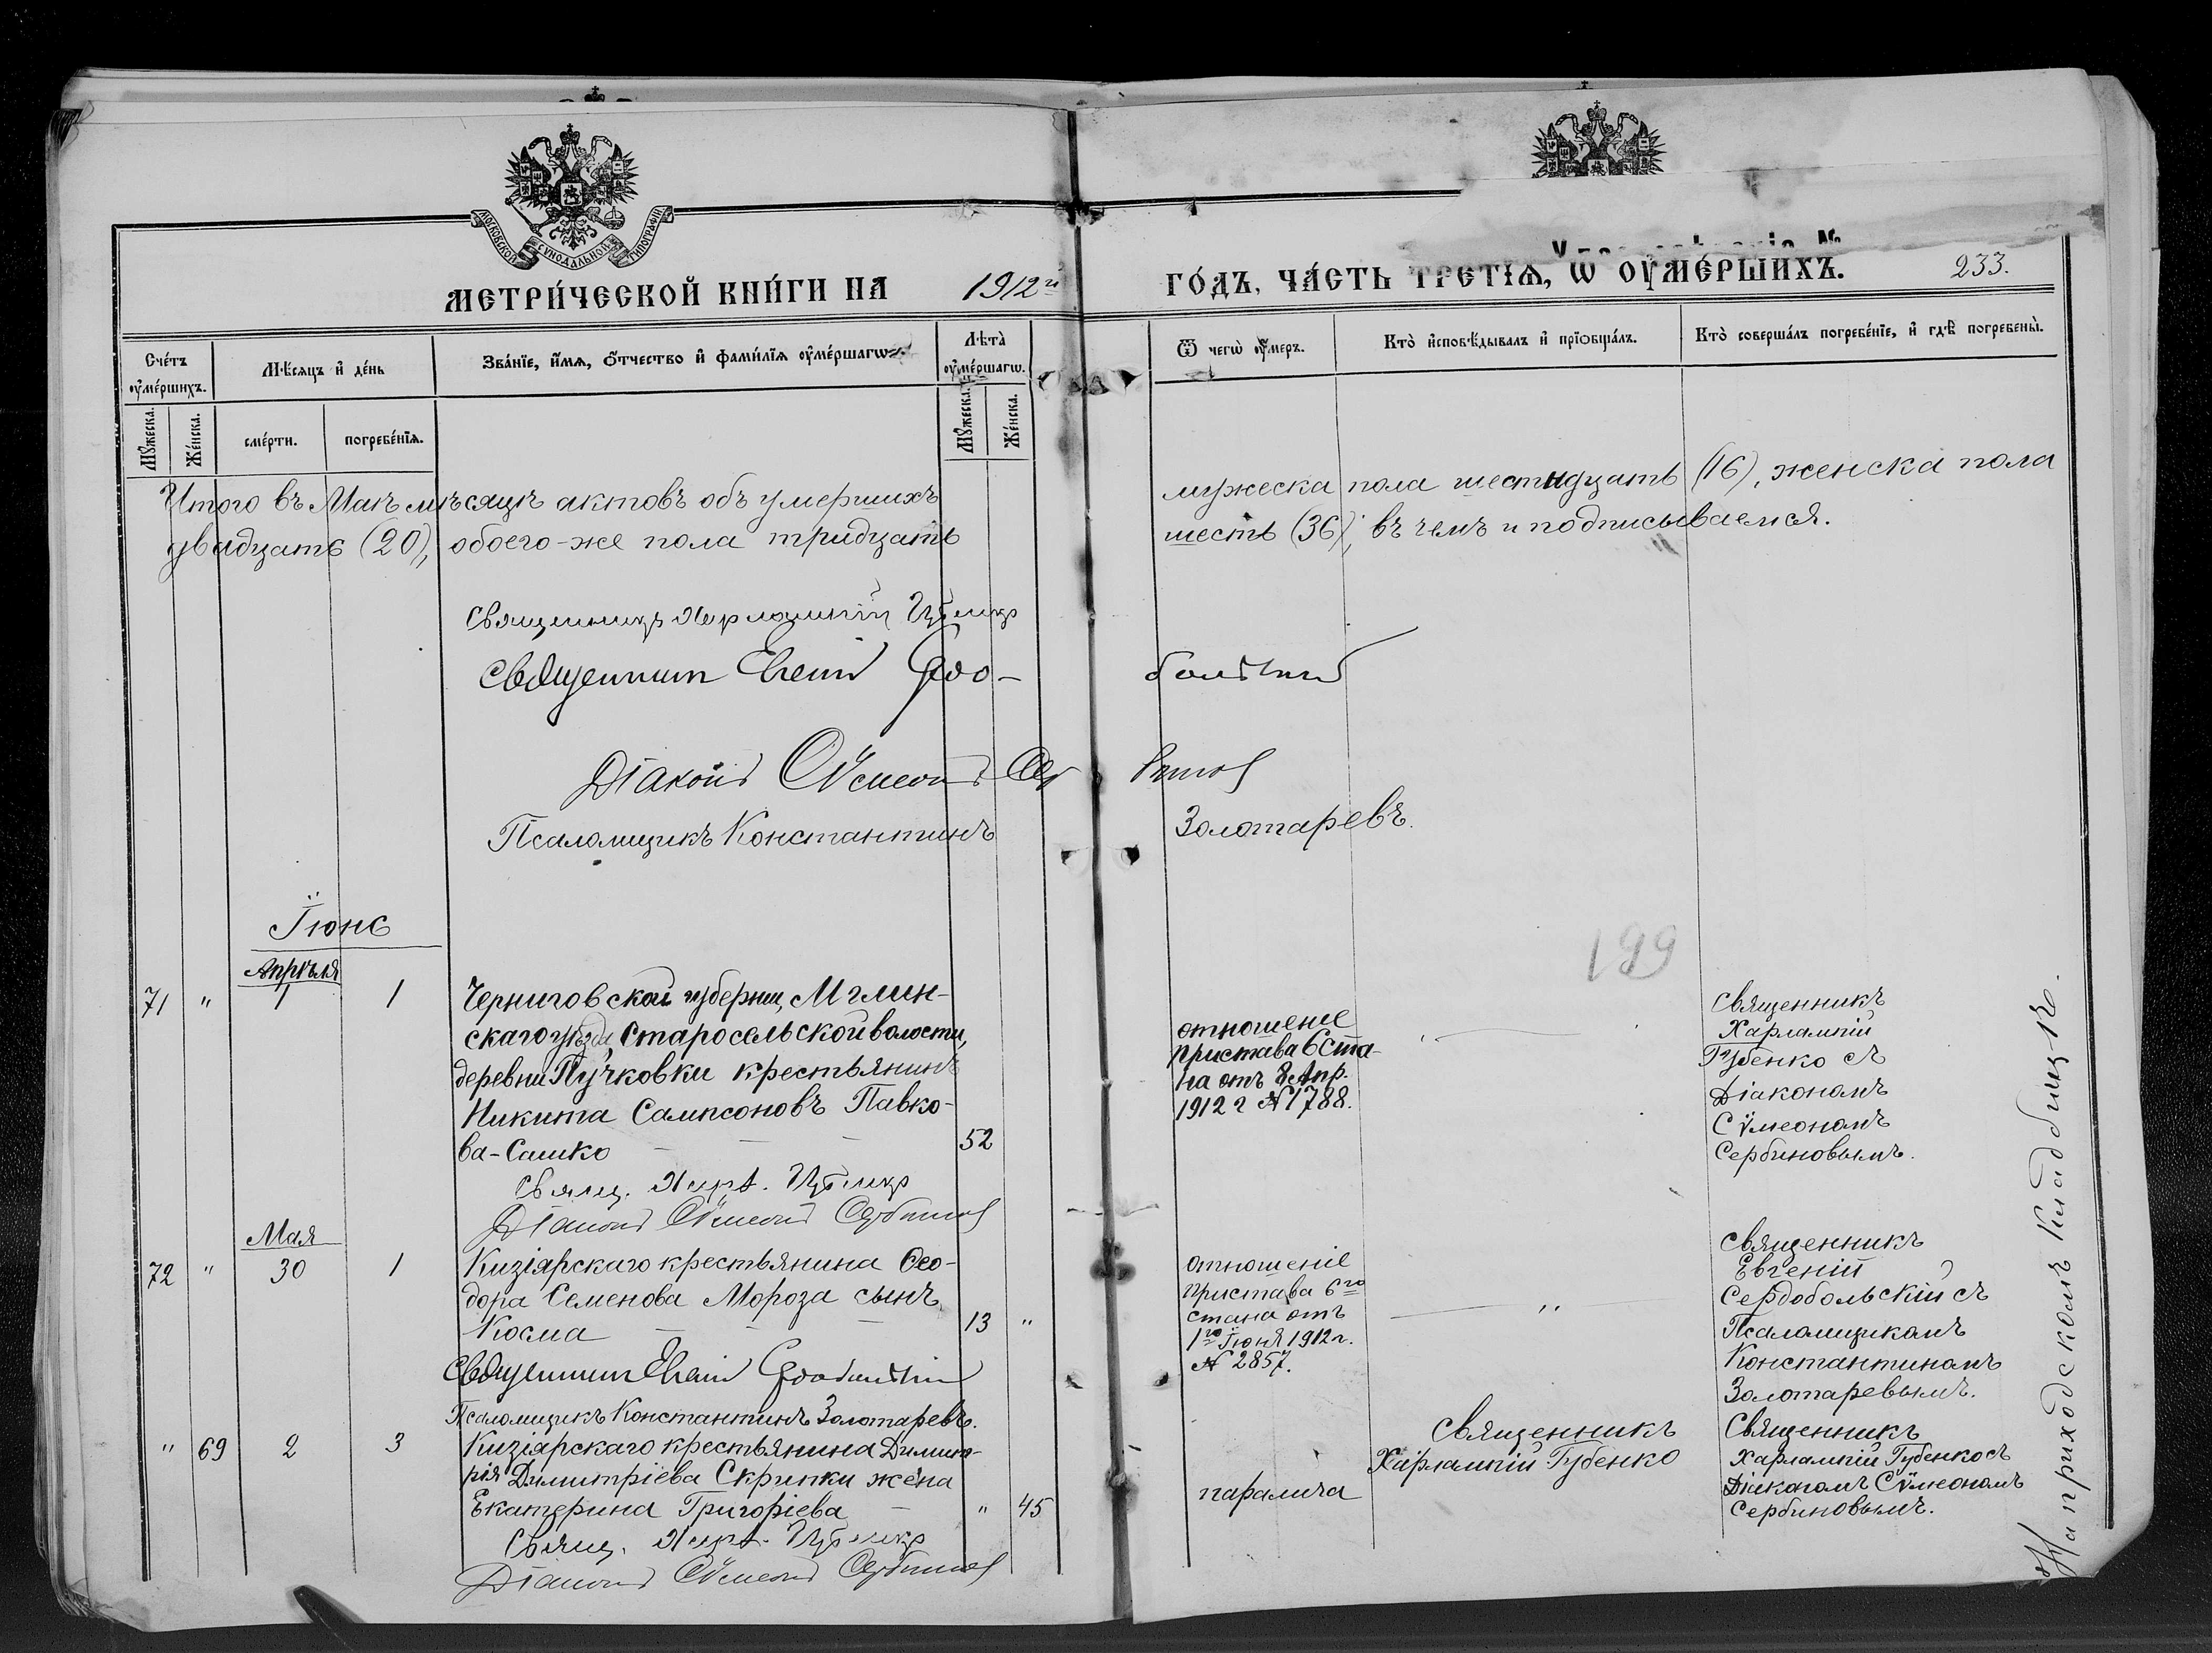 МОСКОВСКОЙ СѴНОДАЛЬНОЙ ТИПОГРАФІИ
МЕТРИ́ЧЕСКОЙ КНИ́ГИ НА 1912й ГО́ДЪ, ЧА́СТЬ ТРЕТІѦ, Ѡ ОУ҆МЕ́РШИХЪ. 233.
Сче́тъ оу҆ме́ршихъ.
Мѣ́сяцъ и҆ де́нь
Зва́нїе, и҆́мѧ, ѻ҆́тчество и҆ фами́лїѧ оу҆ме́ршагѡ.
Лѣ́та̀ оу҆ме́ршагѡ.
Ѿ чегѡ̀ оу҆́меръ.
Кто̀ и҆сповѣ́дывалъ и҆ прїѡбща́лъ.
Кто̀ соверша́лъ погребе́нїе, и҆ гдѣ̀ погребены̀.
Мꙋ́жеска.
Же́нска.
сме́рти.
погребе́нїѧ.
Мꙋ́жеска.
Же́нска.
Итого въ Маѣ мѣсяцѣ актовъ объ умершихъ мужеска пола шестнадцать (16), женска пола
двадцать (20), обоего-же пола тридцать шесть (36), въ чемъ и подписываемся.
Священникъ Харлампій Губенко
Священникъ Евгеній Сердобольскій
Діаконъ Сѵмеонъ Сербиновъ
Псаломщикъ Константинъ Золотаревъ.
199
Іюнь
Апрѣля
71 " 1 1
Черниговской губерніи, Мглин-
скаго уѣзда, Старосельской волости,
деревни Пучковки крестьянинъ
Никита Сампсоновъ Павко-
ва-Сашко 52
отношеніе
пристава 6 ста-
на отъ 8 Апр.
1912 г № 1788.
Священникъ
Харлампій
Губенко съ
Діакономъ
Сѵмеономъ
Сербиновымъ.
Свящ. Харл. Губенко
Діаконъ Сѵмеонъ Сербиновъ
Мая
72 " 30 1
Кизіярскаго крестьянина Ѳео-
дора Семенова Мороза сынъ
Косма 13 "
отношеніе
пристава 6го
стана отъ
1го Іюня 1912 г.
№ 2857.
"
Священникъ
Евгеній
Сердобольскій съ
Псаломщикомъ
Константиномъ
Золотаревымъ.
Священникъ Евгеній Сердобольскій
Псаломщикъ Константинъ Золотаревъ.
" 69 2 3
Кизіярскаго крестьянина Димит-
рія Димитріева Скрипки жена
Екатерина Григоріева " 45
паралича
Священникъ
Харлампій Губенко
Священникъ
Харлампій Губенко съ
Діакономъ Сѵмеономъ
Сербиновымъ.
Свящ. Харл. Губенко
Діаконъ Сѵмеонъ Сербиновъ
На приходскомъ кладбищѣ.